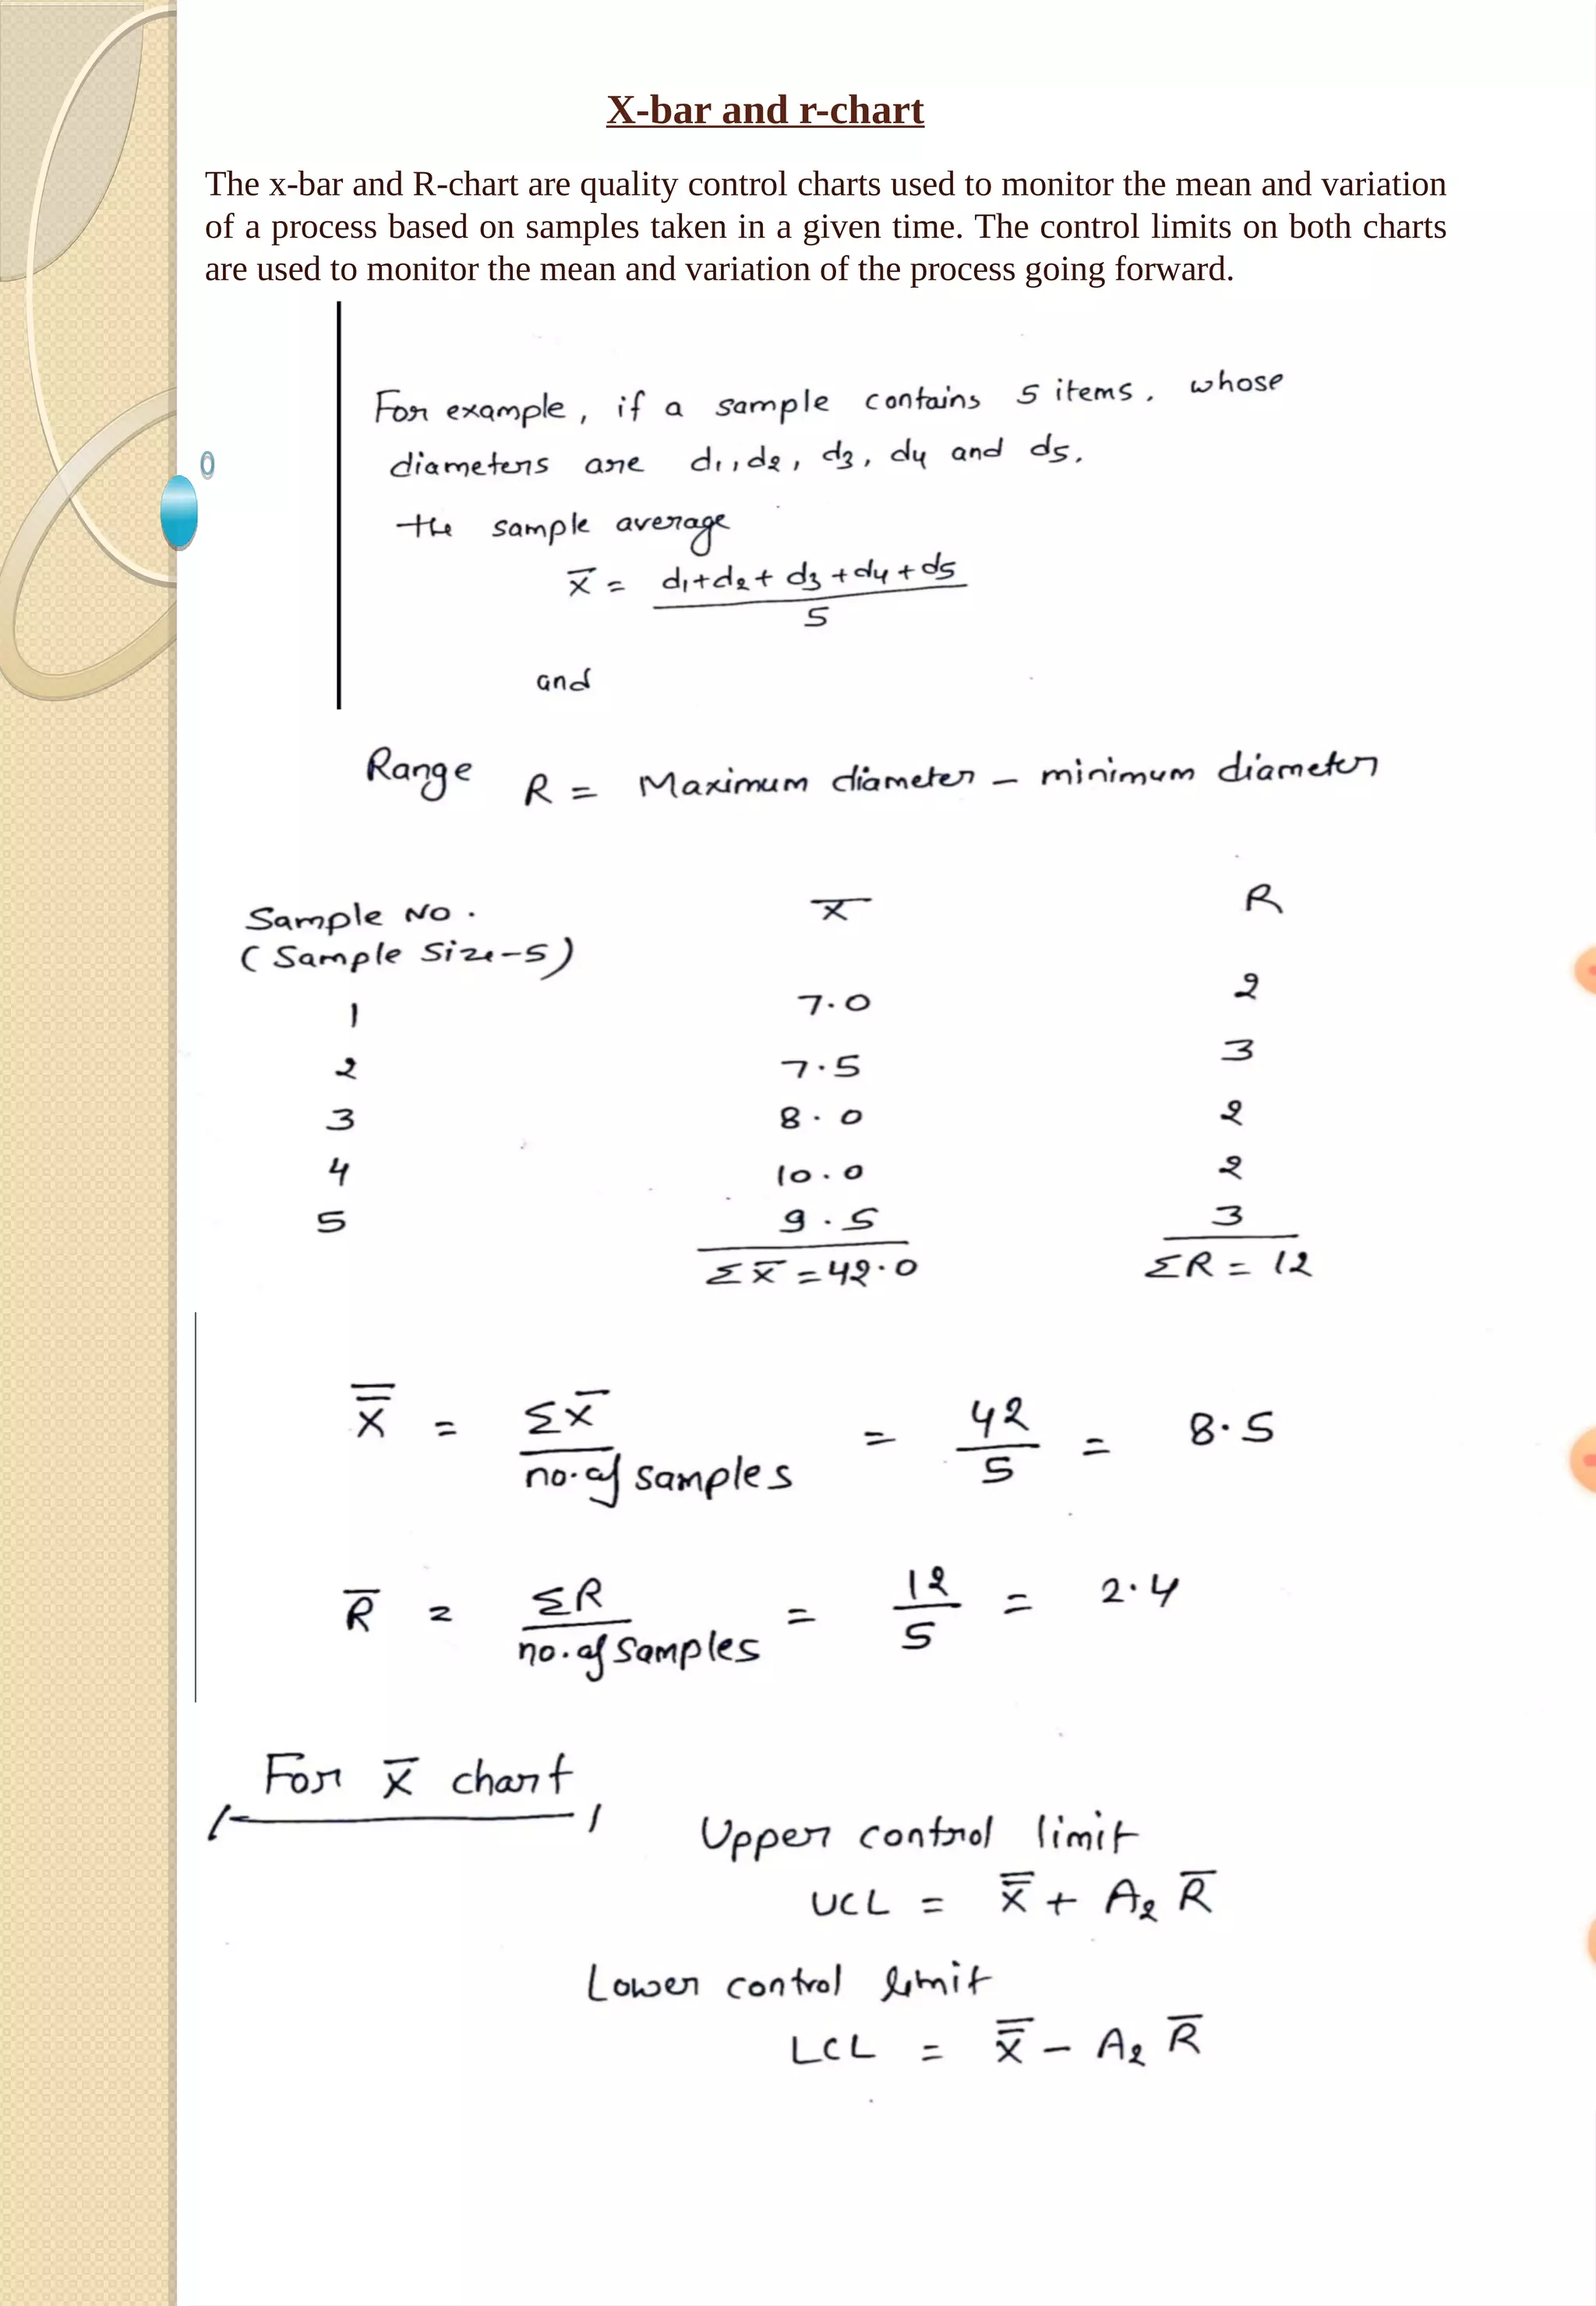 X-bar and r-chart
The x-bar and R-chart are quality control charts used to monitor the mean and variation
of a process based on samples taken in a given time. The control limits on both charts
are used to monitor the mean and variation of the process going forward.
For example, if a sample contains 5 items, whose
diameters are d1, d2, d3, d4 and d5.
the sample average
X̄ = d1+d2+d3+d4+d5
5
and
Range R = Maximum diameter - minimum diameter
Sample No. X̄ R
(Sample Size-5)
1 7.0 2
2 7.5 3
3 8.0 2
4 10.0 2
5 9.5 3
ΣX̄ = 42.0 ΣR = 12
X̿ = ΣX̄ / no. of samples = 42/5 = 8.5
R̄ = ΣR / no. of samples = 12/5 = 2.4
For X̄ chart
Upper control limit
UCL = X̿ + A2 R̄
Lower control limit
LCL = X̿ - A2 R̄